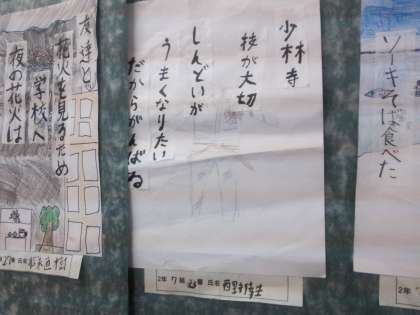 友達と
花火を見るため
学校へ
夜の花火は
少林寺
技が大切
しんどいが
うまくなりたい
だからがんばる
2年7組 番 氏名
ソーキそば食べた
2年